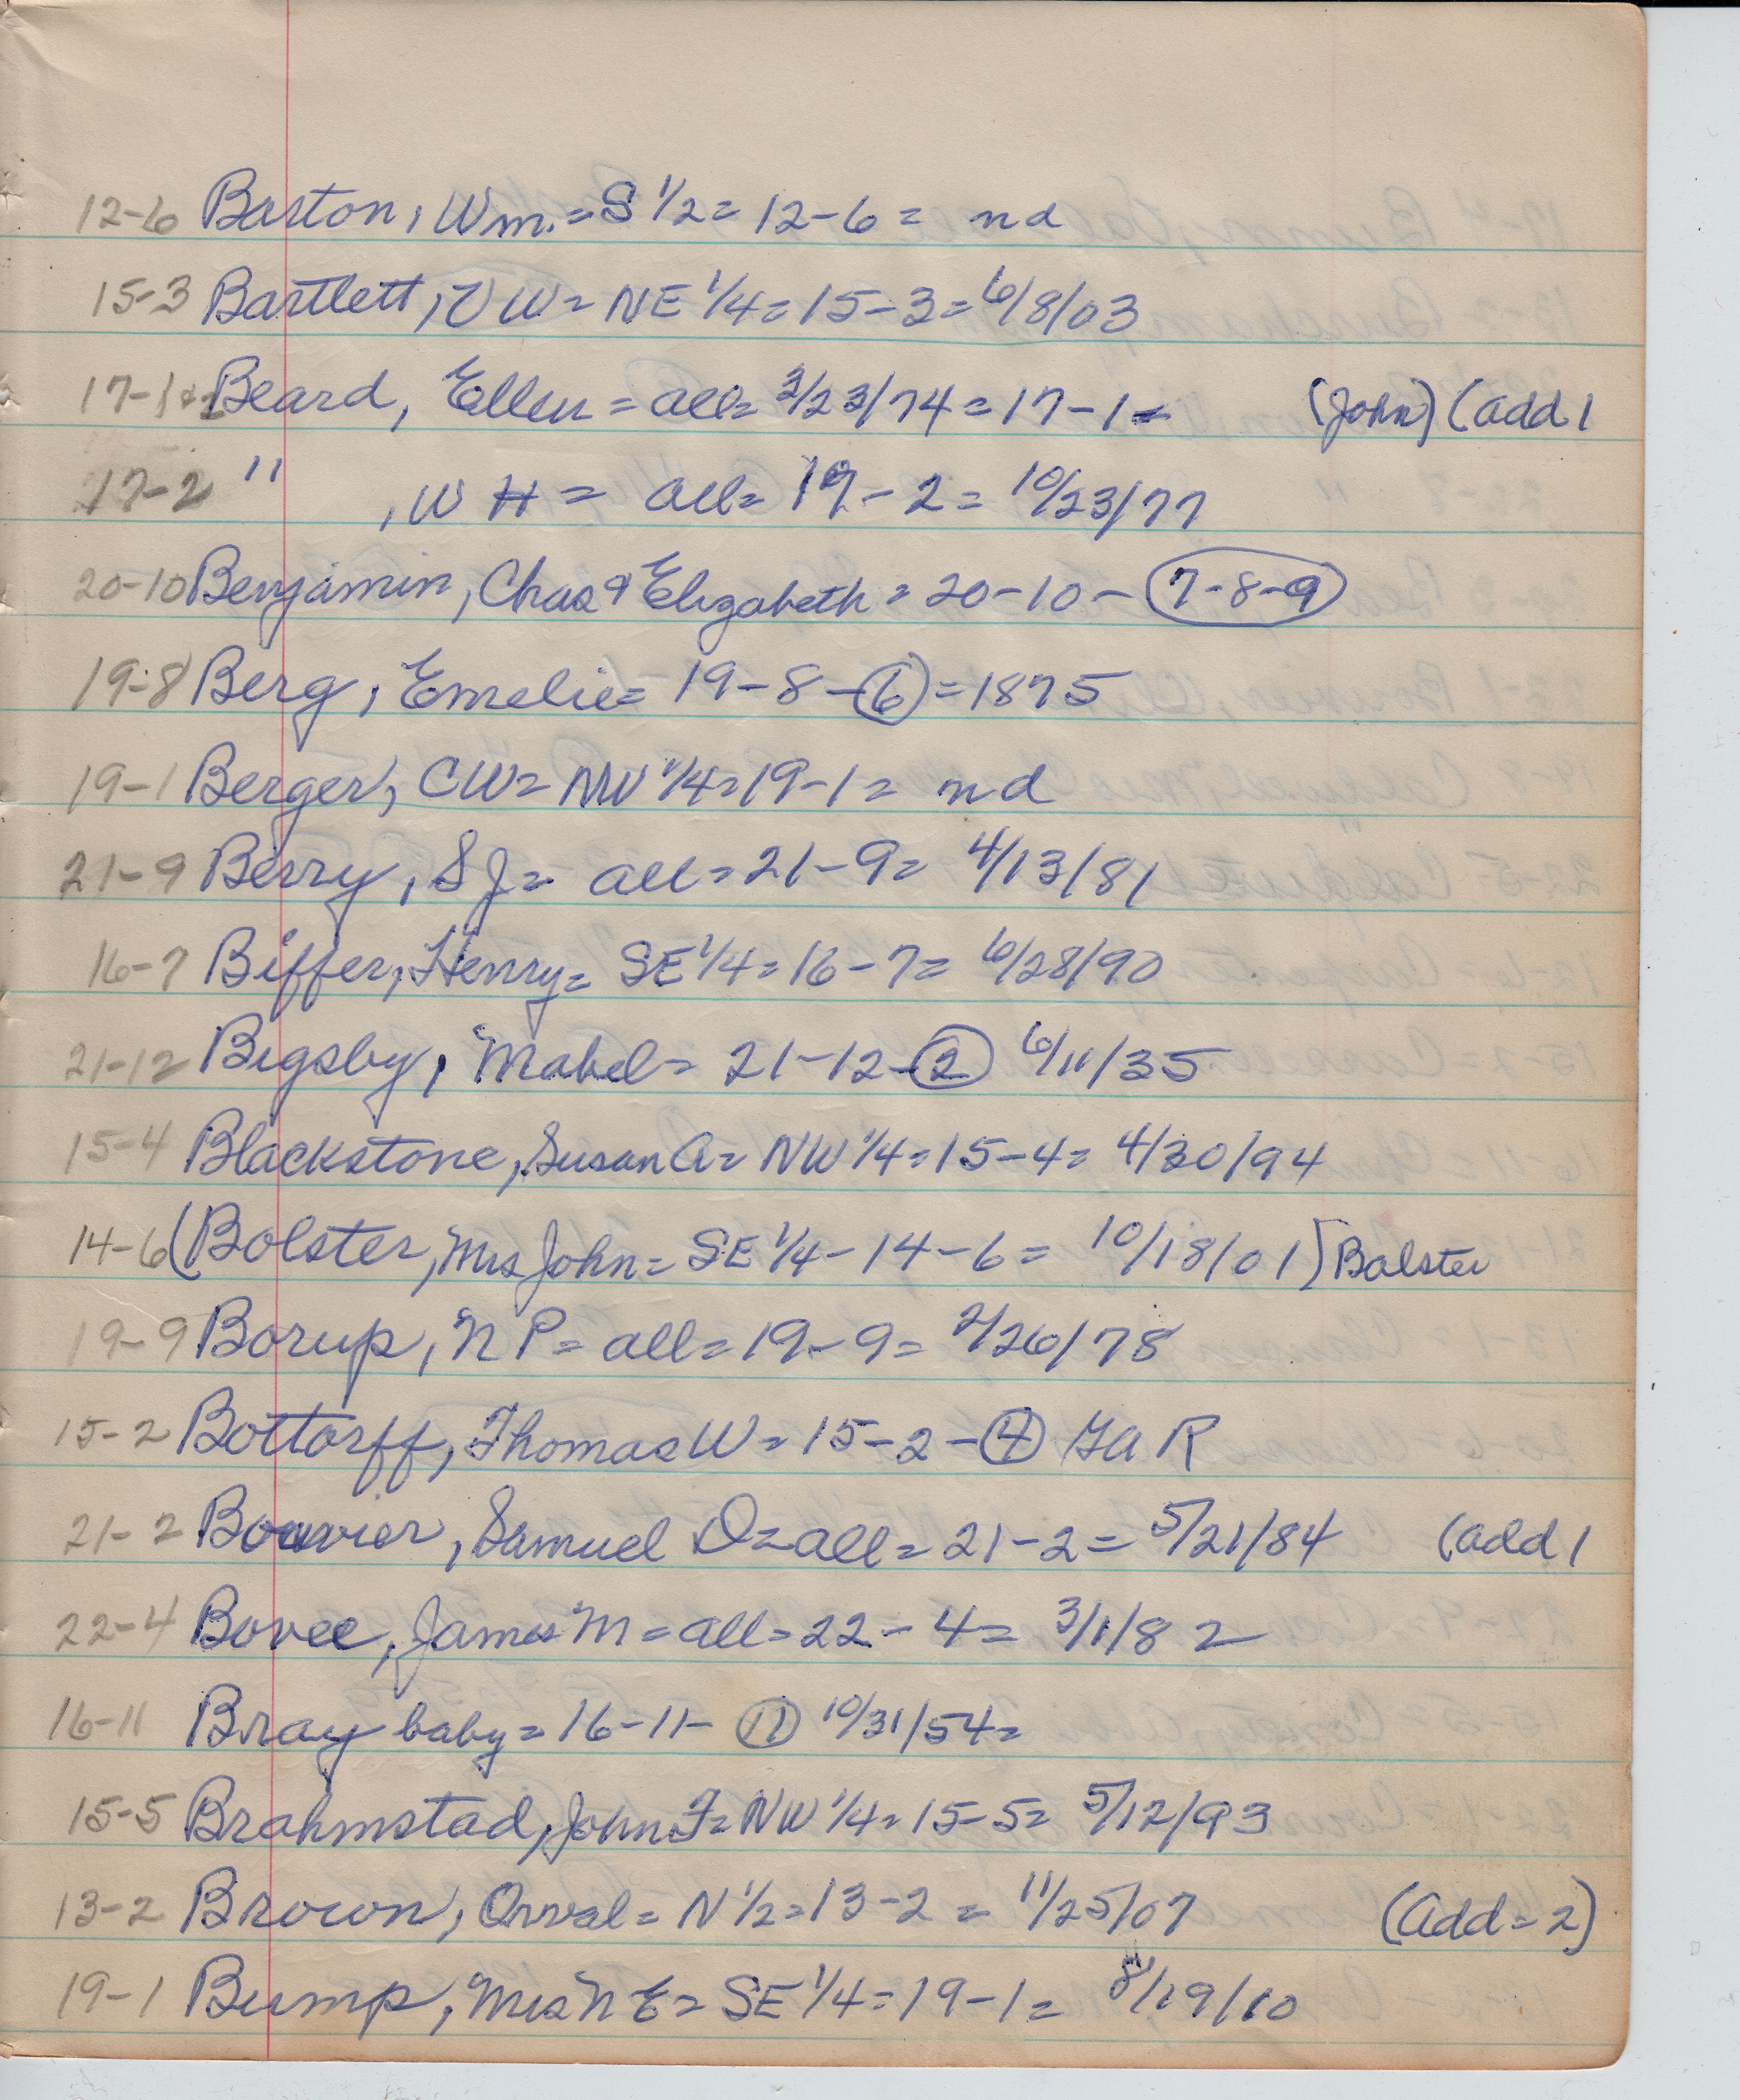 12-6 Barton, Wm. = S 1/2 = 12-6 = nd
15-3 Bartlett, V W = NE 1/4 = 15-3 = 6/8/03
17-1+2 Beard, Ellen = all = 3/23/74 = 17-1- (John) (add 1
17-2 " , W H = all = 17-2 = 10/23/77
20-10 Benjamin, Chas & Elizabeth = 20-10- 7-8-9
19-8 Berg, Emelie = 19-8-6 = 1875
19-1 Berger, CW = NW 1/4 = 19-1 = nd
21-9 Berry, S J = all = 21-9 = 4/13/81
16-7 Biffer, Henry = SE 1/4 = 16-7 = 6/28/90
21-12 Bigsby, Mabel = 21-12-2 6/11/35
15-4 Blackstone, Susan A = NW 1/4 = 15-4 = 4/30/94
14-6 (Bolster, Mrs John = SE 1/4 - 14-6 = 10/18/01) Balster
19-9 Borup, N P = all = 19-9 = 2/26/78
15-2 Bottorff, Thomas W = 15-2-4 GAR
21-2 Bouvier, Samuel D = all = 21-2 = 5/21/84 (add 1
22-4 Bovee, James M = all = 22-4 = 3/1/82
16-11 Bray baby = 16-11- 11 10/31/54 =
15-5 Brahmstad, John F = NW 1/4 = 15-5 = 5/12/93
13-2 Brown, Orval = N 1/2 = 13-2 = 11/25/07 (Add = 2)
19-1 Bump, Mrs N E = SE 1/4 = 19-1 = 8/19/10